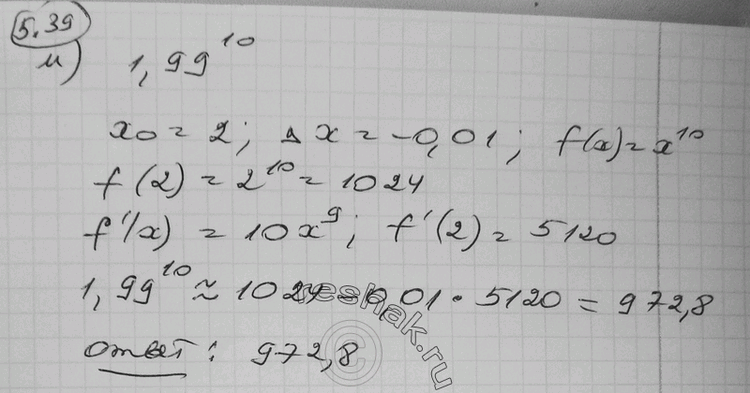 5.39
и) 1,99^10
x0 = 2; Δx = -0,01; f(x) = x^10
f(2) = 2^10 = 1024
f'(x) = 10x^9; f'(2) = 5120
1,99^10 ≈ 1024 - 0,01 · 5120 = 972,8
Ответ: 972,8
reshak.ru
©